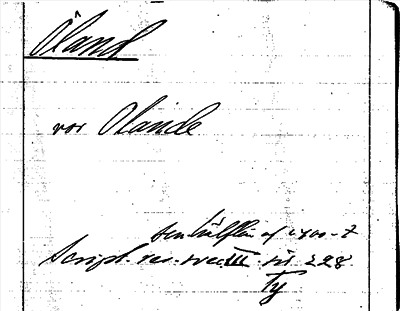 Öland
vor Olande
sen hälften af 1400-t
Script. rer. svec. III sid 228
Ty